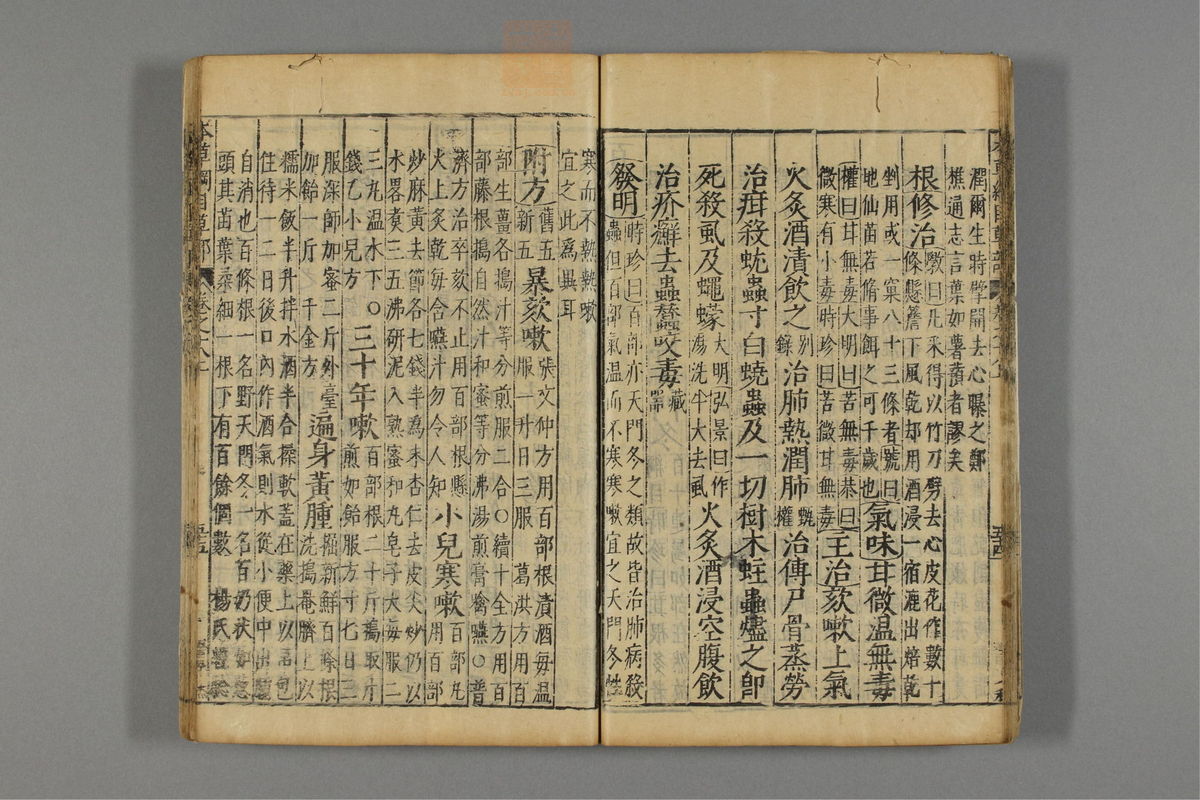 潤爾生時擘開去心曝之鄭
樵通志言葉如薯蕷者謬矣
根修治斆曰凡采得以竹刀劈去心皮花作數十
條懸簷下風乾却用酒浸一宿漉出焙乾
剉用或一窠八十三條者號曰
地仙苗若脩事餌之可千歲也
氣味甘微温無毒
權曰甘無毒大明曰苦無毒恭曰
微寒有小毒時珍曰苦微甘無毒
主治欬嗽上氣
火炙酒漬飲之别錄治肺熱潤肺甄權治傳尸骨蒸勞
治疳殺蚘蟲寸白蟯蟲及一切樹木蛀蟲燼之即
死殺虱及蠅蠓大明弘景曰作湯洗牛犬去虱火炙酒浸空腹飲
治疥癬去蟲蠶咬毒藏器
發明時珍曰百部亦天門冬之類故皆治肺病殺
蟲但百部氣温而不寒寒嗽宜之天門冬性
寒而不熱熱嗽
宜之此爲異耳
附方舊五新五暴欬嗽張文仲方用百部根漬酒每温
服一升日三服 葛洪方用百
部生薑各搗汁等分煎服二合○續十全方用百
部藤根搗自然汁和蜜等分沸湯煎膏噙嚥○普
濟方治卒欬不止用百部根懸
火上炙乾每含嚥汁勿令人知小兒寒嗽百部丸
用百部
炒麻黄去節各七錢半爲末杏仁去皮尖炒仍以
水畧煑三五沸研泥入熟蜜和丸皂子大每服二
三丸温水下○
錢乙小兒方三十年嗽百部根二十斤搗取汁
煎如飴服方寸匕日三
服深師加蜜二斤外臺
加飴一斤 千金方遍身黃腫掘新鮮百條根
洗搗罨臍上以
糯米飯半升拌水酒半合揉軟蓋在藥上以帛包
住待一二日後口內作酒氣則水從小便中出腫
自消也百條根一名野天門冬一名百奶狀如葱
頭其苗葉柔細一根下有百餘個數 楊氏